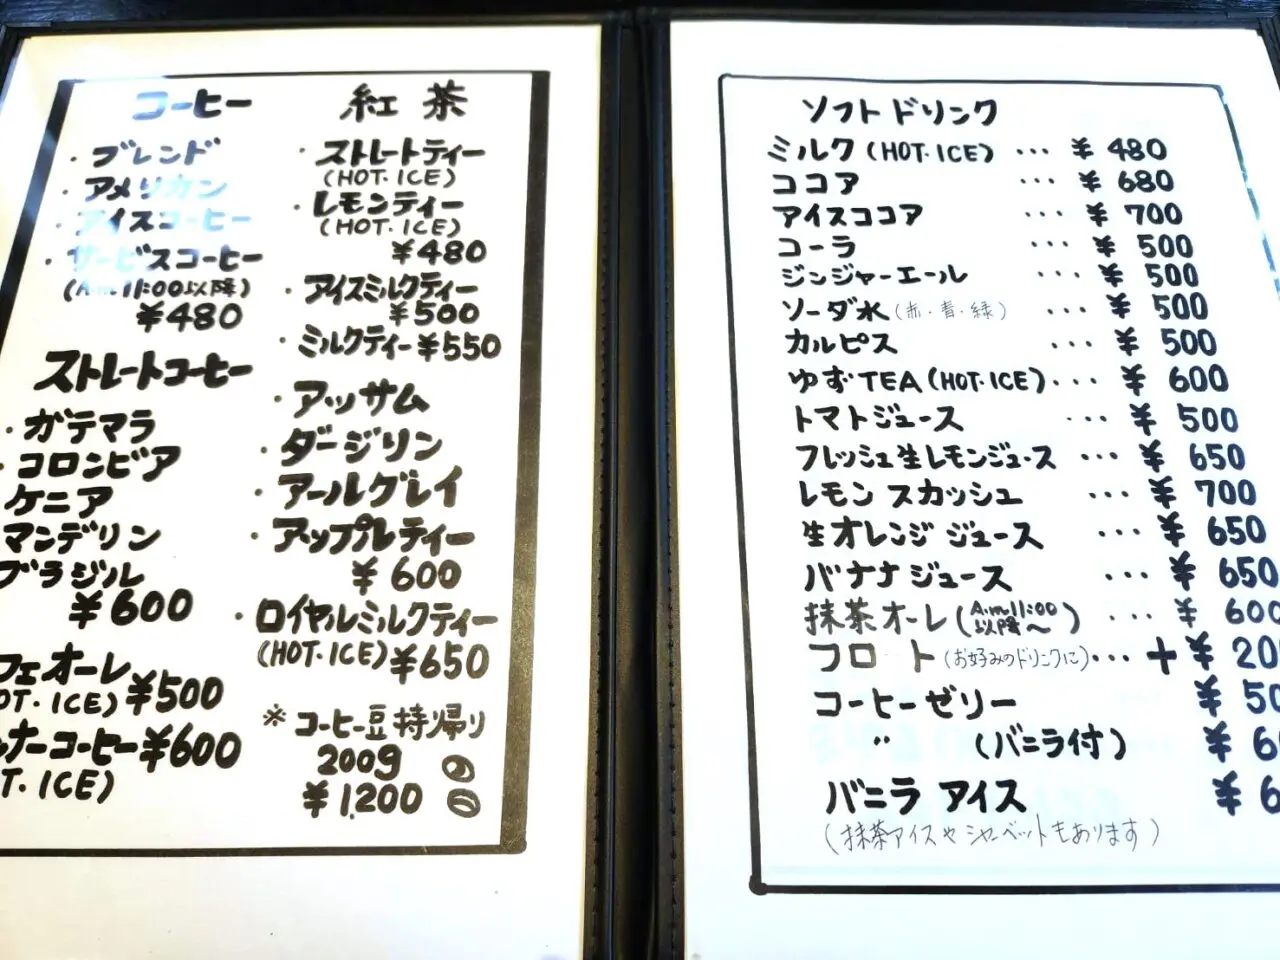 コーヒー
・ブレンド
・アメリカン
・アイスコーヒー
・サービスコーヒー
(A.m.11:00以降)
¥480
ストレートコーヒー
・ガテマラ
・コロンビア
ケニア
マンデリン
ブラジル
¥600
フェオーレ
OT・ICE) ¥500
ンナーコーヒー ¥600
T・ICE)
紅茶
・ストレートティー
(HOT・ICE)
・レモンティー
(HOT・ICE)
¥480
・アイスミルクティー
¥500
・ミルクティー ¥550
・アッサム
・ダージリン
・アールグレイ
・アップルティー
¥600
・ロイヤルミルクティー
(HOT・ICE) ¥650
※コーヒー豆持帰り
200g
¥1,200
ソフトドリンク
ミルク (HOT・ICE) … ¥480
ココア … ¥680
アイスココア … ¥700
コーラ … ¥500
ジンジャーエール … ¥500
ソーダ水 (赤・青・緑) … ¥500
カルピス … ¥500
ゆずTEA (HOT・ICE) … ¥600
トマトジュース … ¥500
フレッシュ生レモンジュース … ¥650
レモンスカッシュ … ¥700
生オレンジジュース … ¥650
バナナジュース … ¥650
抹茶オーレ (A.m11:00以降〜) … ¥600
フロート (お好みのドリンクに) … + ¥20
コーヒーゼリー ¥50
〃 (バニラ付) ¥6
バニラアイス ¥6
(抹茶アイスやシャーベットもあります)